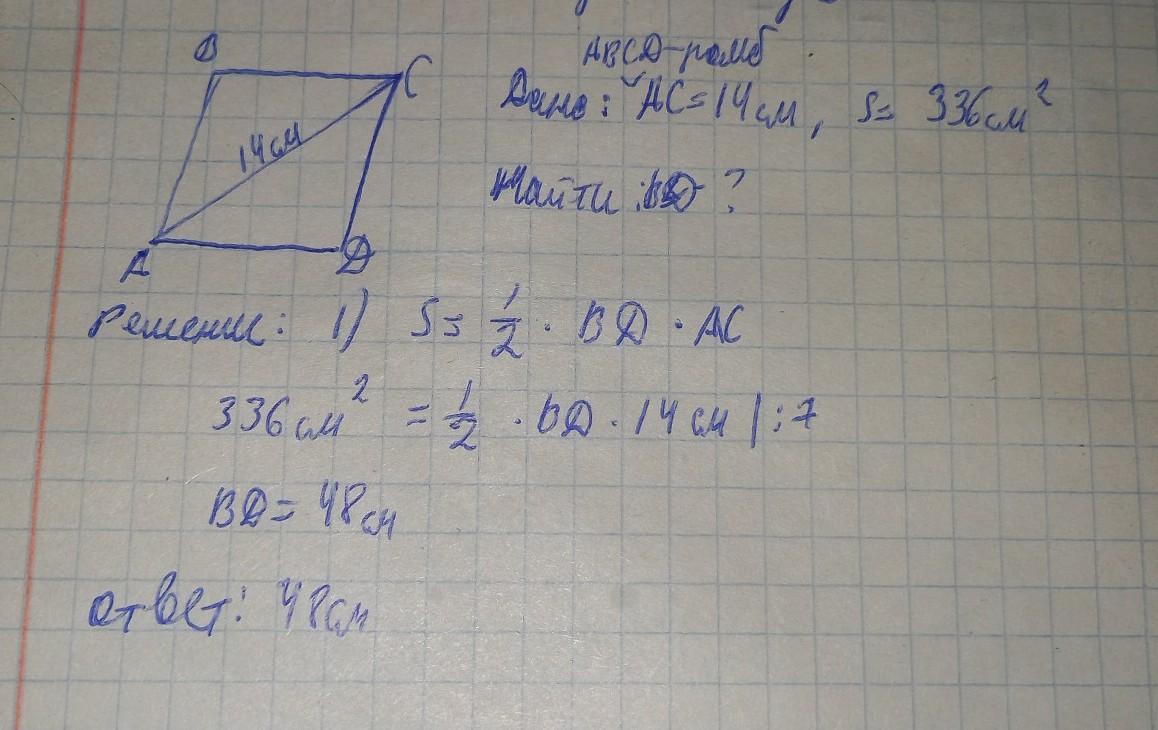 ABCD-ромб
Дано: AC=14см, S= 336см²
Найти: BD ?
B
C
14см
A
D
Решение: 1) S= 1/2 · BD · AC
336см² = 1/2 · BD · 14см |:7
BD= 48см
ответ: 48см